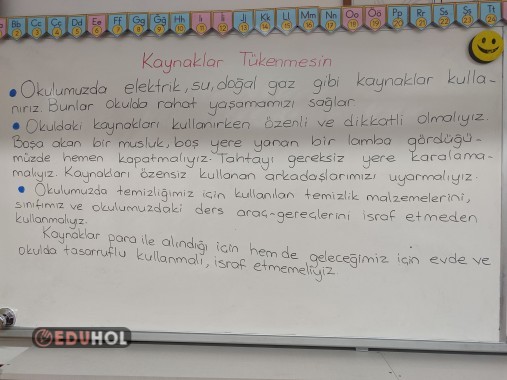 Bb Cc Çç Dd Ee Ff Gg Ğğ Hh Iı İi Jj Kk Ll Mm Nn Oo Öö Pp Rr Ss Şş Tt
2 3 4 5 6 7 8 9 10 11 12 13 14 15 16 17 18 19 20 21 22 23 24
Kaynaklar Tükenmesin
• Okulumuzda elektrik, su, doğal gaz gibi kaynaklar kulla-
nırız. Bunlar okulda rahat yaşamamızı sağlar
• Okuldaki kaynakları kullanırken özenli ve dikkatli olmalıyız.
Boşa akan bir musluk, boş yere yanan bir lamba gördüğü-
müzde hemen kapatmalıyız. Tahtayı gereksiz yere karalama-
malıyız. Kaynakları özensiz kullanan arkadaşlarımızı uyarmalıyız.
• Okulumuzda temizliğimiz için kullanılan temizlik malzemelerini,
sınıfımız ve okulumuzdaki ders araç-gereçlerini israf etmeden
kullanmalıyız.
Kaynaklar para ile alındığı için hem de geleceğimiz için evde ve
okulda tasarruflu kullanmalı, israf etmemeliyiz
EDUHOL